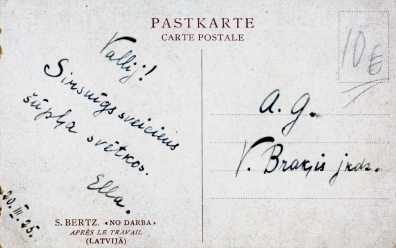 PASTKARTE
CARTE POSTALE
Vallij!
Sirsnīgs sveiciens
šūpļa svētkos.
Ella.
20. III. 25.
S. BERTZ. «NO DARBA»
APRÈS LE TRAVAIL
(LATVIJĀ)
10 €
A. G.
V.